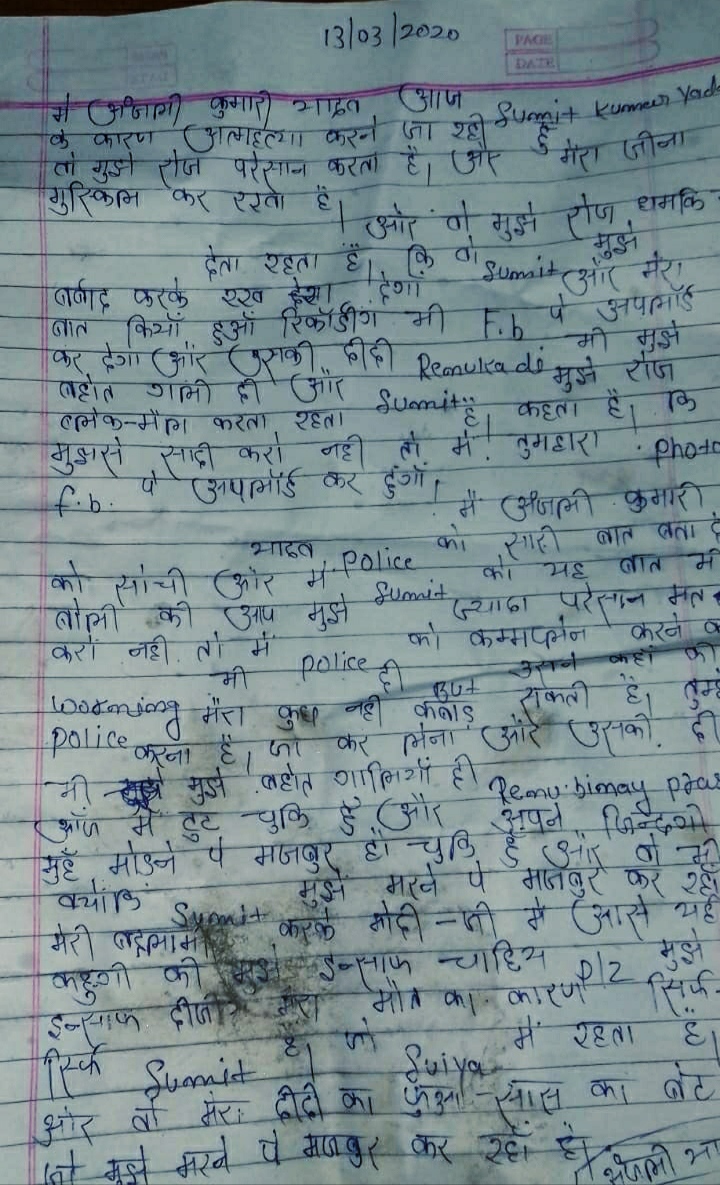 13/03/2020
PAGE
DATE
मै अंजली कुमारी यादव आज
Sumit Kumar Yad
के कारण आत्महत्या करने जा रही हुँ
तो मुझे रोज परेसान करता है। और मेरा जीना
मुस्किल कर रखा है।
और वो मुझे रोज धमकि
देता रहता है। कि वो मुझे
बर्बाद करके रख देगा Sumit और मेरा
बात कियाँ हुआँ रिकॉर्डींग भी F.b पे अपलोर्ड
कर देगा और उसकी दीदी Renuka di भी मुझे
बहोत गाली दी और Sumit मुझे रोज
ब्लेक-मेल करता रहता है। कहता है। कि
मुझसे सादी करो नही तो में तुमहारा photo
f.b. पे अपलोर्ड कर दुंगाँ।
मैं अंजली कुमारी
यादव Police को सारी बात बता
को सोंची और में Sumit को यह बात भी
बोली की आप मुझे ज्यादा परेसान मत
करों नही तो में Police को कम्मप्लेन करने
worning भी दी But उसने कहाँ की
Police मेरा कुछ नही कबाड़ सकती है। तुम्हे
करना है। जा कर लेना और उसकी दी
भी मुझे बहोत गालियाँ दी Renu bimay
आँज में टुट चुकि हुँ और अपने जिन्दगी
मुहँ मोडने पे मजबुर हो चुकि हुँ और वो भी
क्योंकि Sumit मुझे मरने पे मजबुर कर रहा
मेरी बदनामी करके मोदी-जी में आसे यही
कहुगी की मुझे इन्साफ चाहिय plz मुझे
इन्साफ दीजी मेरा मौत का कारण सिर्फ-
सिर्फ Sumit है। जो Suiya में रहता है।
और वो मेरा दीदी का फुआ-सास का बेट
जो मुझे मरने पे मजबुर कर रहाँ है।
अंजली या